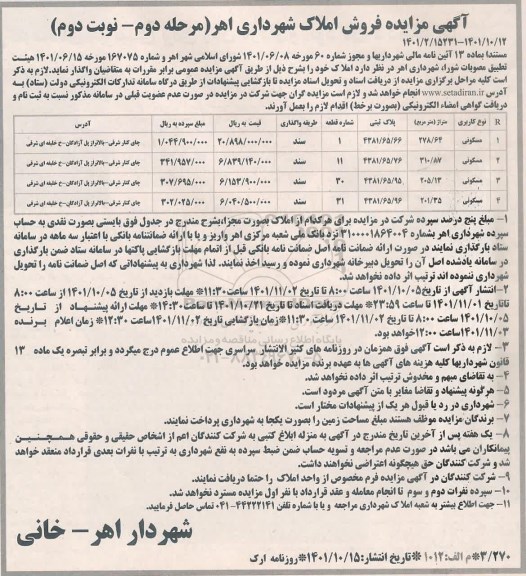 آگهی مزایده فروش املاک شهرداری اهر(مرحله دوم- نوبت دوم)
۱۴۰۱/۲/۱۵۲۳۱-۱۴۰۱/۱۰/۱۲
مستندا بماده ۱۳ آئین نامه مالی شهرداریها و مجوز شماره ۶۰ مورخه ۱۴۰۱/۰۶/۰۸ شورای اسلامی شهر اهر و شماره ۱۶۷۰۷۵ مورخه ۱۴۰۱/۰۶/۱۵ هیئت
تطبیق مصوبات شورا، شهرداری اهر در نظر دارد املاک خود را بشرح ذیل از طریق آگهی مزایده عمومی برابر مقررات به متقاضیان واگذار نماید. لازم به ذکر
است کلیه مراحل برگزاری مزایده از دریافت اسناد و تحویل اسناد مزایده تا بازگشایی پیشنهادات از طریق درگاه سامانه تدارکات الکترونیکی دولت (ستاد) به
آدرس www.setadiran.ir انجام خواهد شد و لازم است مزایده گران جهت شرکت در مزایده در صورت عدم عضویت قبلی در سامانه مذکور نسبت به ثبت نام و
دریافت گواهی امضاء الکترونیکی (بصورت برخط) اقدام لازم را بعمل آورند.
R نوع کاربری متراژ (متر مربع) پلاک ثبتی شماره قطعه طریقه واگذاری قیمت به ریال مبلغ سپرده به ریال آدرس
۱ مسکونی ۲۷۸/۶۴ ۴۳۸۱/۶۵/۶۶ ۱ سند ۲۰/۸۹۸/۰۰۰/۰۰۰ ۱/۰۴۴/۹۰۰/۰۰۰ چای کنار شرقی-بالاتراز پل آزادگان -خ خلیفه ای شرقی
۲ مسکونی ۳۱۰/۸۷ ۴۳۸۱/۶۵/۷۶ ۱۱ سند ۶/۸۳۹/۱۴۰/۰۰۰ ۳۴۱/۹۵۷/۰۰۰ چای کنار شرقی-بالاتراز پل آزادگان -خ خلیفه ای شرقی
۳ مسکونی ۲۰۵/۱۳ ۴۳۸۱/۶۵/۹۵ ۳۰ سند ۶/۱۵۳/۹۰۰/۰۰۰ ۳۰۷/۶۹۵/۰۰۰ چای کنار شرقی-بالاتراز پل آزادگان -خ خلیفه ای شرقی
۴ مسکونی ۲۰۱/۳۵ ۴۳۸۱/۶۵/۹۶ ۳۱ سند ۶/۰۴۰/۵۰۰/۰۰۰ ۳۰۲/۰۲۵/۰۰۰ چای کنار شرقی-بالاتراز پل آزادگان -خ خلیفه ای شرقی
۱- مبلغ پنج درصد سپرده شرکت در مزایده برای هرکدام از املاک بصورت مجزا،بشرح مندرج در جدول فوق بایستی بصورت نقدی به حساب
سپرده شهرداری اهر بشماره ۳۱۰۰۰۰۱۸۶۴۰۰۴ نزد بانک ملی شعبه مرکزی اهر واریز و یا با ارائه ضمانتنامه بانکی با اعتبار سه ماهه در سامانه
ستاد بارگذاری نمایند در صورت ارائه ضمانت نامه اصل ضمانت نامه بانکی قبل از اتمام مهلت بازگشایی پاکتها در سامانه ستاد ضمن بارگذاری
در سامانه یادشده اصل آن را تحویل دبیرخانه شهرداری نموده و رسید اخذ نمایند. لذا شهرداری به پیشنهاداتی که اصل ضمانت نامه را تحویل
شهرداری ننموده اند ترتیب اثر داده نخواهد شد.
۲-انتشار آگهی از تاریخ ۱۴۰۱/۱۰/۰۵ ساعت ۸:۰۰ تا تاریخ ۱۴۰۱/۱۱/۰۲ ساعت ۱۱:۳۰* مهلت بازدید از تاریخ ۱۴۰۱/۱۰/۰۵ از ساعت ۸:۰۰
تاتاریخ ۱۴۰۱/۱۱/۰۱ تا ساعت ۲۳:۵۹* مهلت دریافت اسناد تا تاریخ ۱۴۰۱/۱۰/۲۱ تا ساعت ۱۴:۳۰* مهلت ارائه پیشنهاد از تاریخ
۱۴۰۱/۱۰/۰۵ ساعت ۸:۰۰ تا تاریخ ۱۴۰۱/۱۱/۰۲ ساعت ۱۱:۳۰* زمان بازگشایی تاریخ ۱۴۰۱/۱۱/۰۲ ساعت ۱۲:۳۰* زمان اعلام برنده
۱۴۰۱/۱۱/۰۳ ساعت ۱۲:۰۰ خواهد بود.
۳- لازم به ذکر است آگهی فوق همزمان در روزنامه های کثیر الانتشار سراسری جهت اطلاع عموم درج میگردد و برابر تبصره یک ماده ۱۳
قانون شهرداریها کلیه هزینه های آگهی ها به عهده برنده مزایده خواهد بود.
۴- به تقاضای مبهم و مخدوش ترتیب اثر داده نخواهد شد.
۵- هرگونه پیشنهاد و تقاضا مغایر با متن آگهی مردود است.
۶- شهرداری در رد یا قبول هر یک از پیشنهادات مختار است.
۷- برندگان مزایده موظف هستند مبلغ مساحت زمین را بصورت یکجا به شهرداری پرداخت نمایند.
۸- یک هفته پس از آخرین تاریخ مندرج در آگهی به منزله ابلاغ کتبی به شرکت کنندگان اعم از اشخاص حقیقی و حقوقی همچنین
پیمانکاران می باشد در صورت عدم مراجعه و تسویه حساب ضمن ضبط سپرده به نفع شهرداری به ترتیب با نفرات بعدی قرارداد منعقد خواهد
شد و شرکت کنندگان حق هیچگونه اعتراضی نخواهند داشت.
۹- شرکت کنندگان در آگهی مزایده فرم مخصوص از واحد املاک را حتما دریافت نمایند.
۱۰- سپرده نفرات دوم و سوم تا انجام معامله و عقد قرارداد با نفر اول مزایده مسترد نخواهد شد.
۱۱- جهت اطلاع بیشتر به شعبه املاک شهرداری مراجعه و یا با شماره تلفن ۴۴۲۲۲۱۴۱-۰۴۱ تماس حاصل فرمایید.
شهردار اهر- خانی
۳/۲۷۰*م الف:۱۰۱۲ *تاریخ انتشار: ۱۴۰۱/۱۰/۱۵*روزنامه ارک